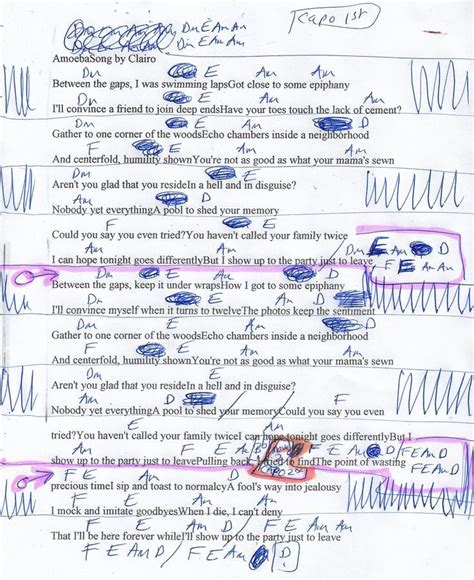 Dm E Am Am Kapo 1st
Dm E Am Am
AmoebaSong by Clairo
Dm E Am Am
Between the gaps, I was swimming lapsGot close to some epiphany
Dm E Am D
I'll convince a friend to join deep endsHave your toes touch the lack of cement?
Dm Am D
Gather to one corner of the woodsEcho chambers inside a neighborhood
F E Am Am
And centerfold, humility shownYou're not as good as what your mama's sewn
Dm E
Aren't you glad that you resideIn a hell and in disguise?
Am D
Nobody yet everythingA pool to shed your memory
F E
Could you say you even tried?You haven't called your family twice
Am Am / Dm E Am D
I can hope tonight goes differentlyBut I show up to the party just to leave
F E Am Am
Dm E Am D
Between the gaps, keep it under wrapsHow I got to some epiphany
Dm E Am
I'll convince myself when it turns to twelveThe photos keep the sentiment
Dm E Am D
Gather to one corner of the woodsEcho chambers inside a neighborhood
F E Am Am
And centerfold, humility shownYou're not as good as what your mama's sewn
Dm E
Aren't you glad that you resideIn a hell and in disguise?
Am D F
Nobody yet everythingA pool to shed your memoryCould you say you even
E Am Am
tried?You haven't called your family twiceI can hope tonight goes differentlyBut I
F E Am D F E Am D
show up to the party just to leavePulling back, I tried to findThe point of wasting
F E Am D
F E Am D
precious timeI sip and toast to normalcyA fool's way into jealousy
F E Am Am
I mock and imitate goodbyesWhen I die, I can't deny
Am D F E Am Am
That I'll be here forever whileI'll show up to the party just to leave
F E Am D / F E Am D